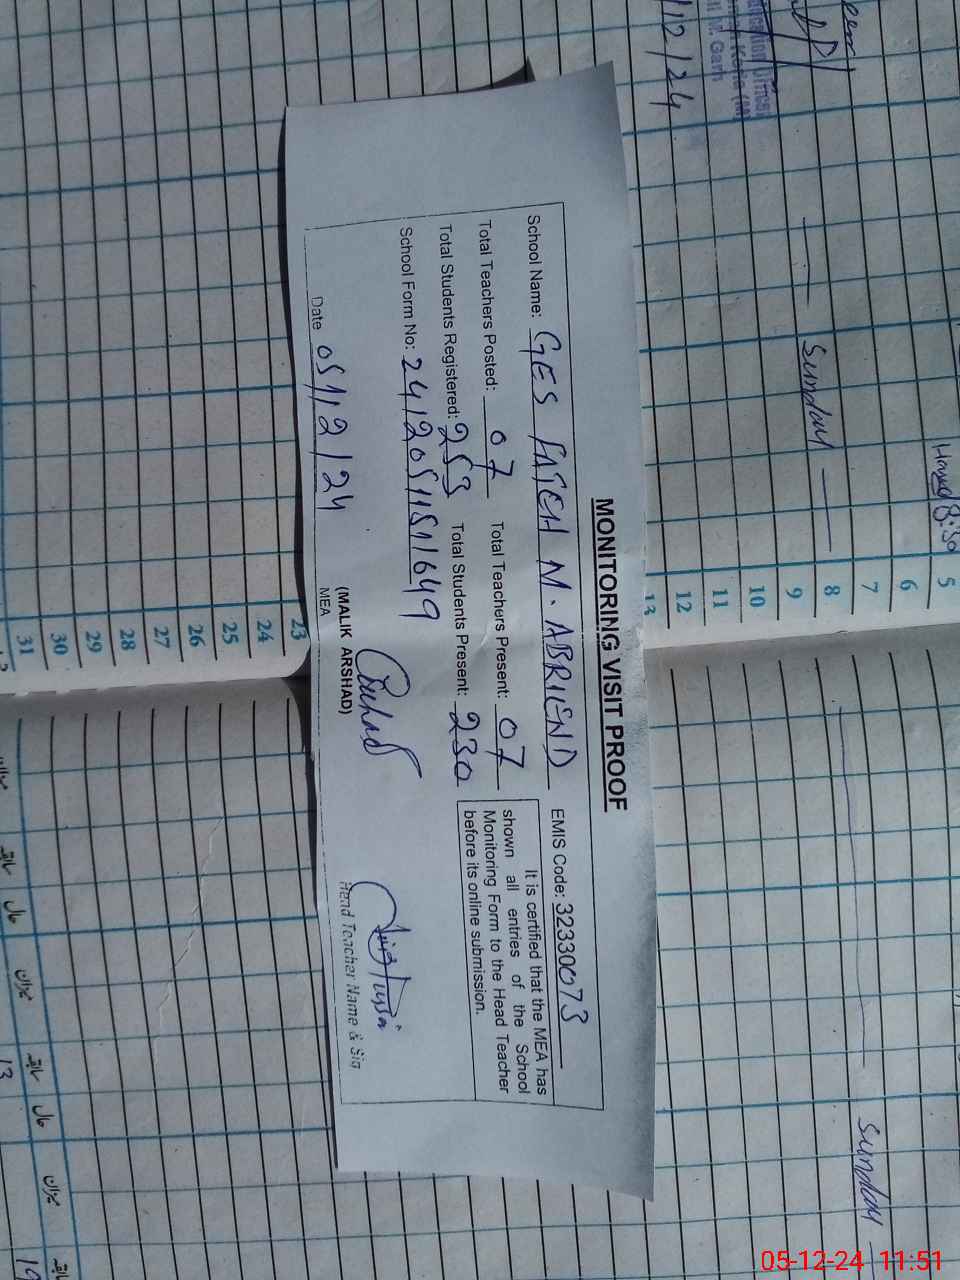 MONITORING VISIT PROOF
School Name: GES FATEH M. ABRIEND EMIS Code: 32330073
Total Teachers Posted: 07 Total Teachers Present: 07
Total Students Registered: 253 Total Students Present: 230
School Form No: 24120511511649
It is certified that the MEA has
shown all entries of the School
Monitoring Form to the Head Teacher
before its online submission.
Date 05/12/24
(MALIK ARSHAD)
MEA
Head Teacher Name & Sig
/12/24
8:30
Sunday
Sunday
5
6
7
8
9
10
11
12
13
23
24
25
26
27
28
29
30
31
میزان
سابقہ
حال
میزان
سابقہ
حال
میزان
سابقہ
13
19
05-12-24 11:51